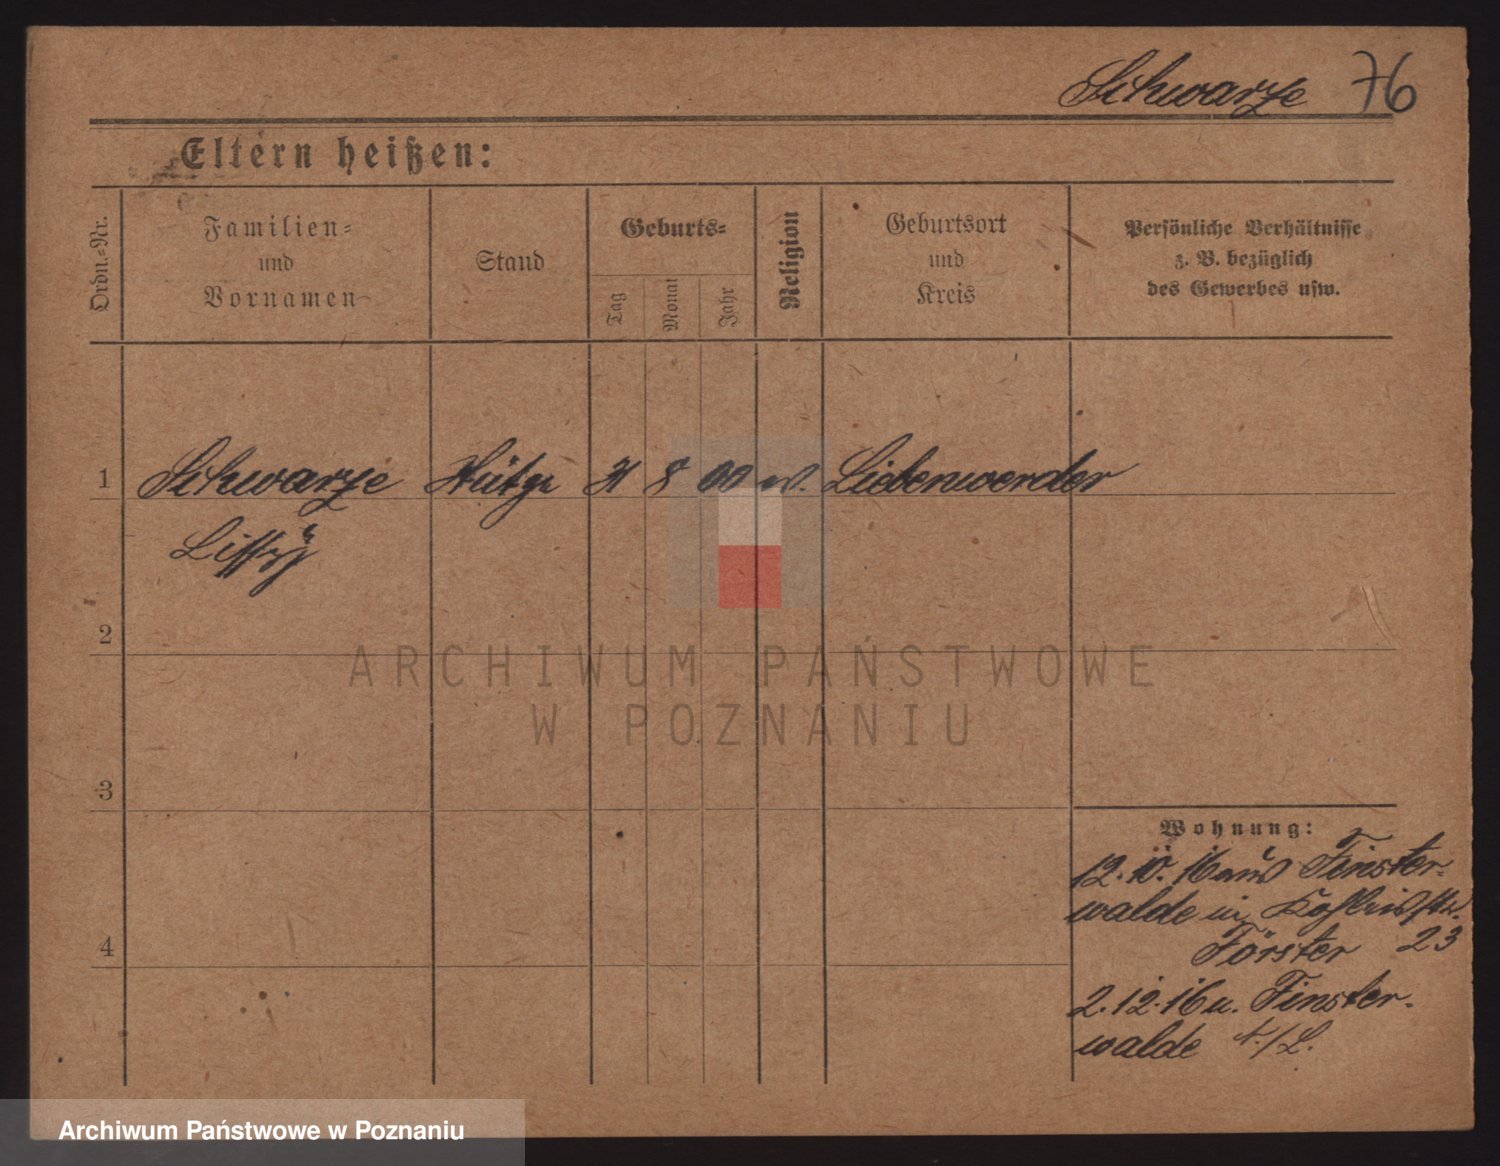 Schwarze 76
Eltern heißen:
Ordn.-Nr.
Familien-
und
Vornamen
Stand
Geburts-
Tag
Monat
Jahr
Religion
Geburtsort
und
Kreis
Persönliche Verhältnisse
z. B. bezüglich
des Gewerbes usw.
1 Schwarze 8 00 Liebenwerder
2
3
4
Wohnung:
12.10.16 aus Finster-
walde in
Förster 23
2.12.16 n. Finster-
walde
ARCHIWUM PAŃSTWOWE
W POZNANIU
Archiwum Państwowe w Poznaniu